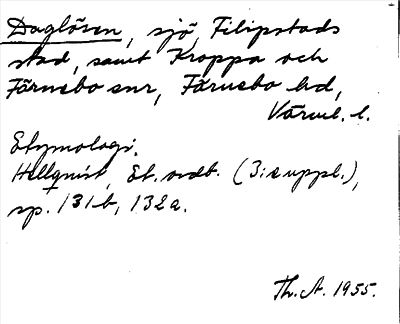 Daglösen, sjö, Filipstads
stad, samt Kroppa och
Färnebo snr, Färnebo hd,
Värml. l.
Etymologi.
Hellquist, Et. ordb. (3:e uppl.),
sp. 131b, 132a.
Th. A. 1955.